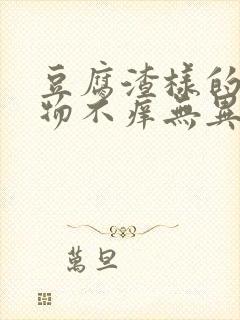 豆腐渣樣的
物不癢無異
萬旦